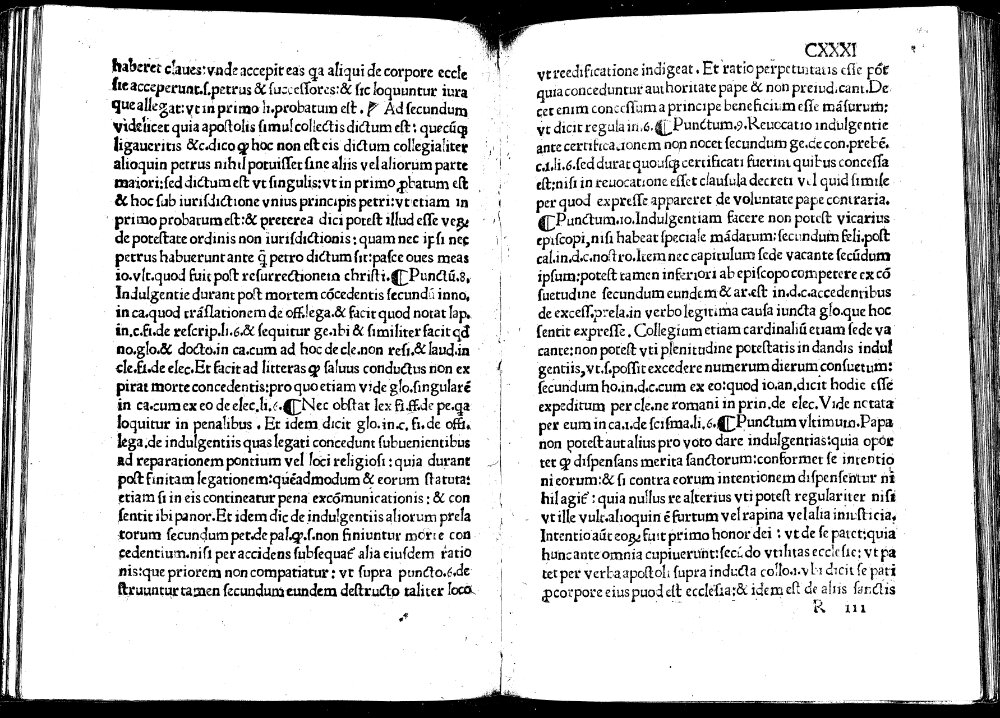 haberet claues: vnde accepit eas qa aliqui de corpore eccle
sie acceperunt.s.petrus & successores: & sic loquuntur iura
que allegat: vt in primo li.probatum est. Ad secundum
videlicet quia apostolis simul collectis dictum est: quecūqꝫ
ligaueritis &c. dico ꝙ hoc non est eis dictum collegialiter
alioquin petrus nihil potuisset sine aliis vel aliorum parte
maiori: sed dictum est vt singulis: vt in primo ꝓbatum est
& hoc sub iurisdictione vnius principis petri: vt etiam in
primo probatum est: & preterea dici potest illud esse veꝝ
de potestate ordinis non iurisdictionis: quam nec ipsi nec
petrus habuerunt ante q̄ petro dictum sit: pasce oues meas
io.vlt.quod fuit post resurrectionem christi. ¶ Punctū.8.
Indulgentie durant post mortem cōcedentis secundū inno.
in ca.quod trāslationem de off.lega.& facit quod notat lap.
in.c.fi.de rescrip.li.6.& sequitur ge.ibi & similiter facit qd̄
no.glo.& docto.in ca.cum ad hoc de cle.non resi.& laud.in
cle.fi.de elec. Et facit ad litteras ꝙ saluus conductus non ex
pirat morte concedentis: pro quo etiam vide glo.singularē
in ca.cum ex eo de elec.li.6. ¶ Nec obstat lex fi.ff.de pe.qa
loquitur in penalibus. Et idem dicit glo.in.c.fi.de offi.
lega.de indulgentiis quas legati concedunt subuenientibus
ad reparationem pontium vel loci religiosi: quia durant
post finitam legationem: quēadmodum & eorum statuta:
etiam si in eis contineatur pena excōmunicationis: & con
sentit ibi panor. Et idem dic de indulgentiis aliorum prela
torum secundum pet.de pal.ꝙ.s.non finiuntur morte con
cedentium.nisi per accidens subsequat͛ alia eiusdem ratio
nis: que priorem non compatiatur: vt supra puncto.6.de
struuntur tamen secundum eundem destructo taliter loco
CXXXI
vt reedificatione indigeat. Et ratio perpetuitatis esse pōt
quia conceduntur authoritate pape & non preiudicant. De
cet enim concessum a principe beneficium esse māsurum:
vt dicit regula in.6. ¶ Punctum.9. Reuocatio indulgentie
ante certificationem non nocet secundum ge.de con.prebē.
c.1.li.6.sed durat quousqꝫ certificati fuerint quibus concessa
est: nisi in reuocatione esset clausula decreti vel quid simile
per quod expresse appareret de voluntate pape contraria.
¶ Punctum.10. Indulgentiam facere non potest vicarius
episcopi, nisi habeat speciale mādatum: secundum feli.post
cal.in.d.c.nostro. Item nec capitulum sede vacante secūdum
ipsum: potest tamen inferiori ab episcopo competere ex cō
suetudine secundum eundem & ar.est in.d.c.accedentibus
de excess.prela.in verbo legitima causa iuncta glo.que hoc
sentit expresse. Collegium etiam cardinaliū etiam sede va
cante: non potest vti plenitudine potestatis in dandis indul
gentiis, vt.s.possit excedere numerum dierum consuetum:
secundum ho.in.d.c.cum ex eo: quod io.an.dicit hodie esse
expeditum per cle.ne romani in prin.de elec. Vide notata
per eum in ca.1.de scisma.li.6. ¶ Punctum vltimum. Papa
non potest aut alius pro voto dare indulgentias: quia opor
tet ꝙ dispensans merita sanctorum: conformet se intentio
ni eorum: & si contra eorum intentionem dispensentur ni
hil agit͛: quia nullus re alterius vti potest regulariter nisi
vt ille vult. alioquin ē furtum vel rapina vel alia iniusticia.
Intentio aūt eoꝝ fuit primo honor dei: vt de se patet: quia
hunc ante omnia cupiuerunt: secūdo vtilitas ecclesie: vt pa
tet per verba apostoli supra inducta collo.1.vbi dicit se pati
ꝓ corpore eius puod est ecclesia: & idem est de aliis sanctis
R iii